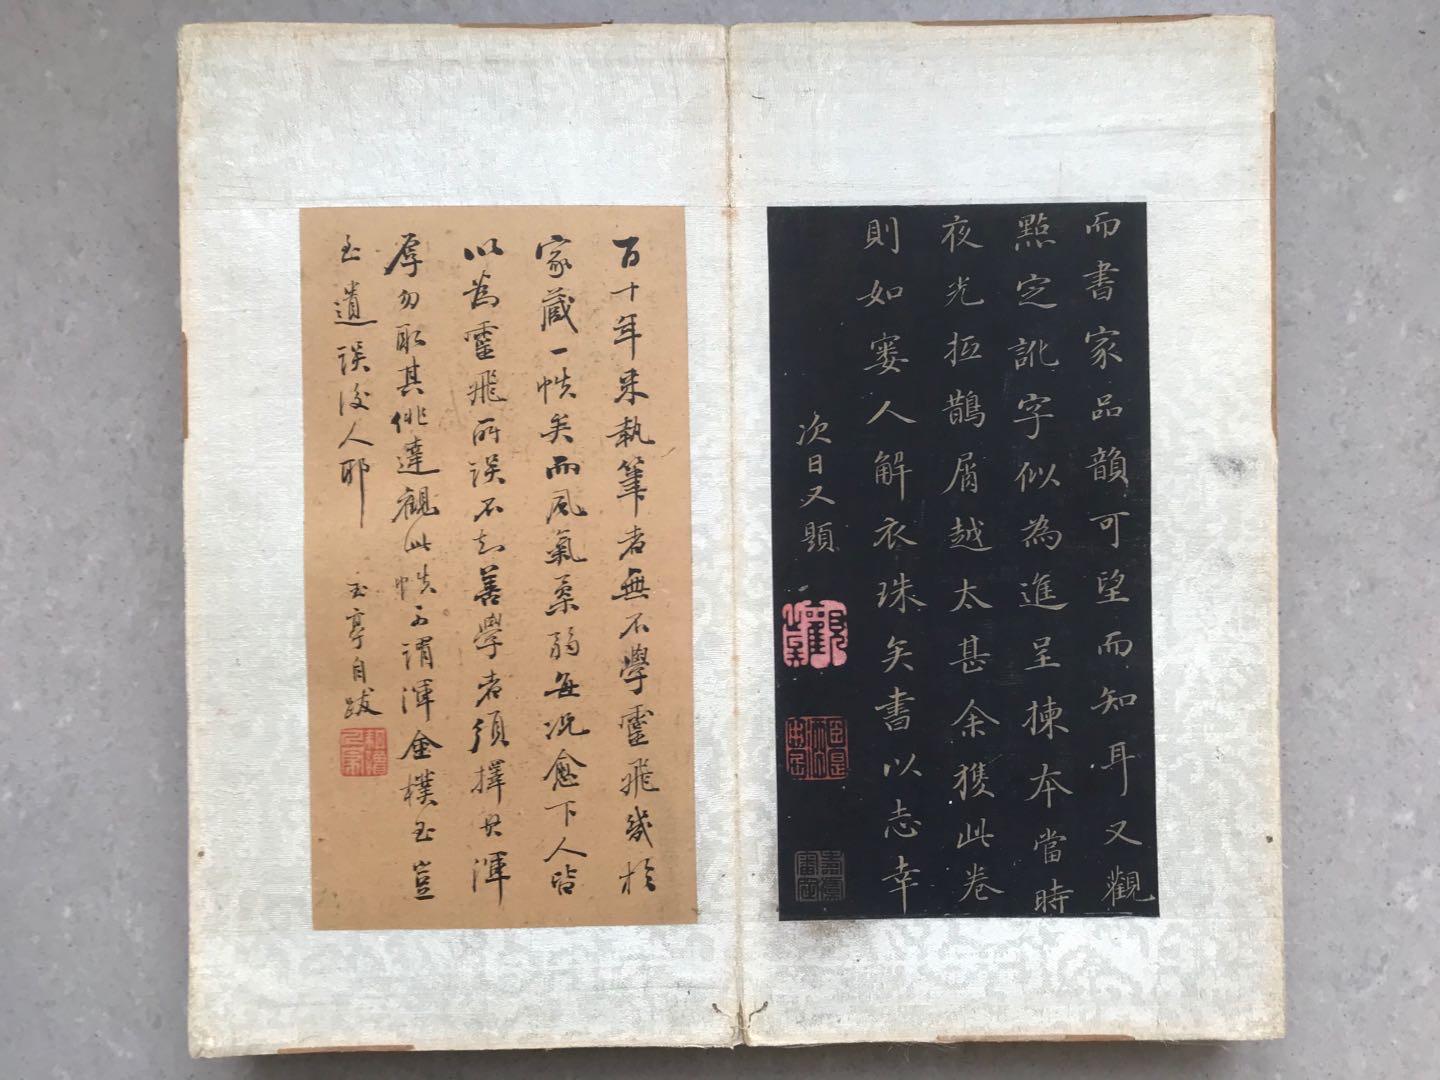 而書家品韻可望而知耳又觀
點定訛字似為進呈揀本當時
夜光抵鵲屑越太甚余獲此卷
則如窶人解衣珠矣書以志幸
次日又題
百十年來執筆者無不學靈飛幾於
家藏一帙矣而風氣柔弱每況愈下人皆
以為靈飛所誤不知善學者須擇其渾
厚勿取其佻達觀此帙可謂渾金樸玉豈
至遺誤後人耶
玉亭自跋